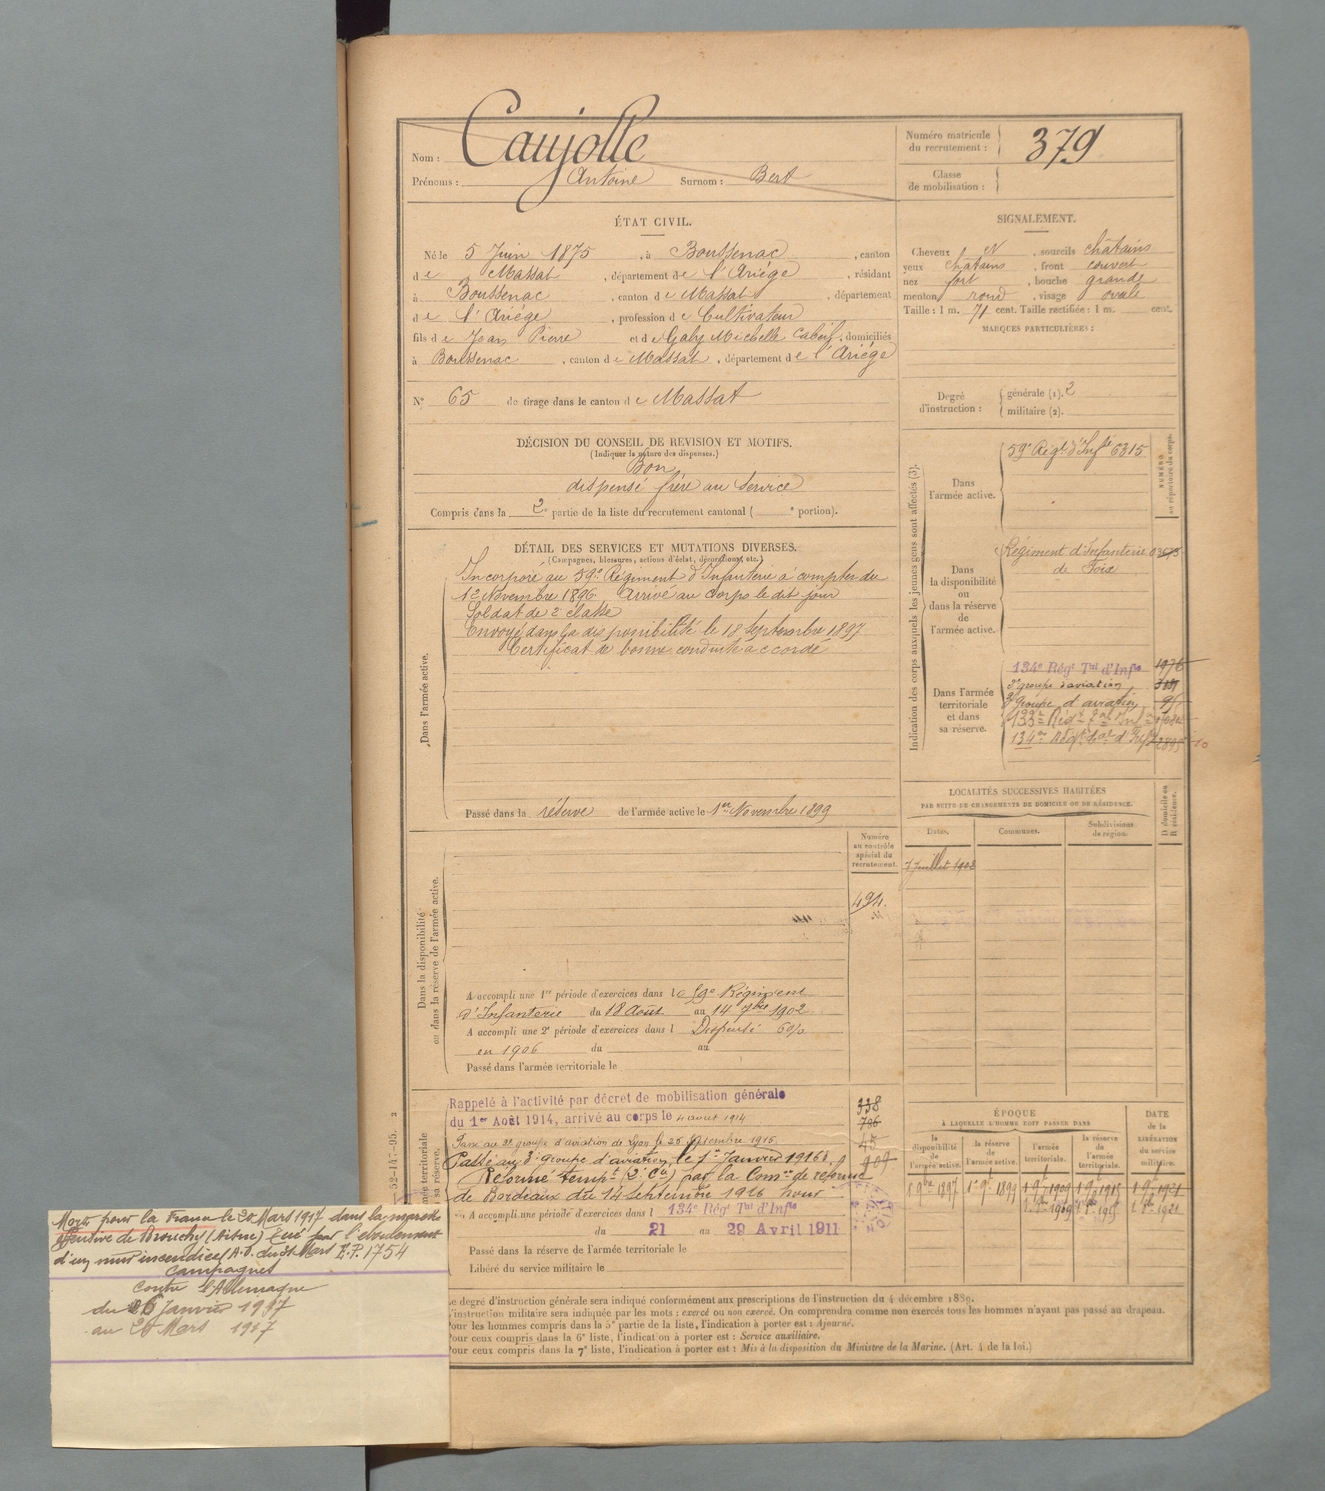 Nom : Caujolle
Prénoms : Antoine Surnom : Bert
Numéro matricule
du recrutement : 379
Classe
de mobilisation :
ÉTAT CIVIL.
Né le 5 Juin 1875, à Boussenac, canton
de Massat, département de l'Ariége, résidant
à Boussenac, canton de Massat, département
de l'Ariége, profession de Cultivateur
fils de Jean Pierre et de Galy Michelle, domiciliés
à Boussenac, canton de Massat, département de l'Ariége
N° 65 de tirage dans le canton de Massat
SIGNALEMENT.
Cheveux N, sourcils châtains
yeux chatains, front couvert
nez fort, bouche grande
menton rond, visage ovale
Taille : 1 m. 71 cent. Taille rectifiée : 1 m. cent.
MARQUES PARTICULIÈRES :
Degré
d'instruction :
générale (1). 2
militaire (2).
DÉCISION DU CONSEIL DE REVISION ET MOTIFS.
(Indiquer la nature des dispenses.)
Bon
dispensé frère au service
Compris dans la 2e partie de la liste du recrutement cantonal ( e portion).
DÉTAIL DES SERVICES ET MUTATIONS DIVERSES.
(Campagnes, blessures, actions d'éclat, décorations, etc.)
Dans l'armée active.
Incorporé au 59e Régiment d'Infanterie à compter du
1er Novembre 1896. Arrivé au Corps le dit jour
Soldat de 2e classe
Envoyé dans la disponibilité le 18 Septembre 1897
Certificat de bonne conduite accordé
Passé dans la réserve de l'armée active le 1er Novembre 1899
Indication des corps auxquels les jeunes gens sont affectés (3).
NUMÉRO
au répertoire du corps.
Dans
l'armée active.
59e Régt d'Infie 6315
Dans
la disponibilité
ou
dans la réserve
de
l'armée active.
Régiment d'Infanterie
de Foix
Dans l'armée
territoriale
et dans
sa réserve.
134e Régt Tal d'Infie 1976
3e groupe d'aviation
3e groupe d'aviation
134e Régt
LOCALITÉS SUCCESSIVES HABITÉES
PAR SUITE DE CHANGEMENTS DE DOMICILE OU DE RÉSIDENCE.
Dates.
Communes.
Subdivisions
de région.
D domicile ou
R résidence.
7 Juillet 1902
Dans la disponibilité
ou dans la réserve de l'armée active.
Numéro
au contrôle
spécial du
recrutement.
494.
A accompli une 1re période d'exercices dans le 59e Régiment
d'Infanterie du 18 Août au 14 7bre 1902
A accompli une 2e période d'exercices dans l Dispensé 6 0/0
en 1906 du au
Passé dans l'armée territoriale le
Rappelé à l'activité par décret de mobilisation générale
du 1er Août 1914, arrivé au corps le 4 août 1914
338
786
45
909
Passé au 3e groupe d'aviation de Lyon le 26 Septembre 1915
Passé au 3e groupe d'aviation, le 1er Janvier 1916
Réformé tempt (2e Cie) par la Comon de réforme
de Bordeaux du 14 septembre 1916 pour
A accompli une période d'exercices dans l 134e Régt Tal d'Infie
du 21 au 29 Avril 1911
Passé dans la réserve de l'armée territoriale le
Libéré du service militaire le
ÉPOQUE
À LAQUELLE L'HOMME DOIT PASSER DANS
la
disponibilité
de
l'armée active.
la réserve
de
l'armée active.
l'armée
territoriale.
la réserve
de
l'armée
territoriale.
DATE
de la
LIBÉRATION
du service
militaire.
1 9bre 1897 1 9e 1899 1 9e 1909 1 9e 1915 1 9e 1921
52-147-95. 2
Le degré d'instruction générale sera indiqué conformément aux prescriptions de l'instruction du 4 décembre 1889.
L'instruction militaire sera indiquée par les mots : exercé ou non exercé. On comprendra comme non exercés tous les hommes n'ayant pas passé au drapeau.
Pour les hommes compris dans la 5e partie de la liste, l'indication à porter est : Ajourné.
Pour ceux compris dans la 6e liste, l'indication à porter est : Service auxiliaire.
Pour ceux compris dans la 7e liste, l'indication à porter est : Mis à la disposition du Ministre de la Marine. (Art. 4 de la loi.)
Mort pour la France le 20 Mars 1917 dans la marche
offensive de Brouchy (Aisne) Tué par l'éboulement
d'un mur incendié (A.O. du 31 Mars E.P. 1754
Campagnes
Contre l'Allemagne
du 26 Janvier 1917
au 20 Mars 1917